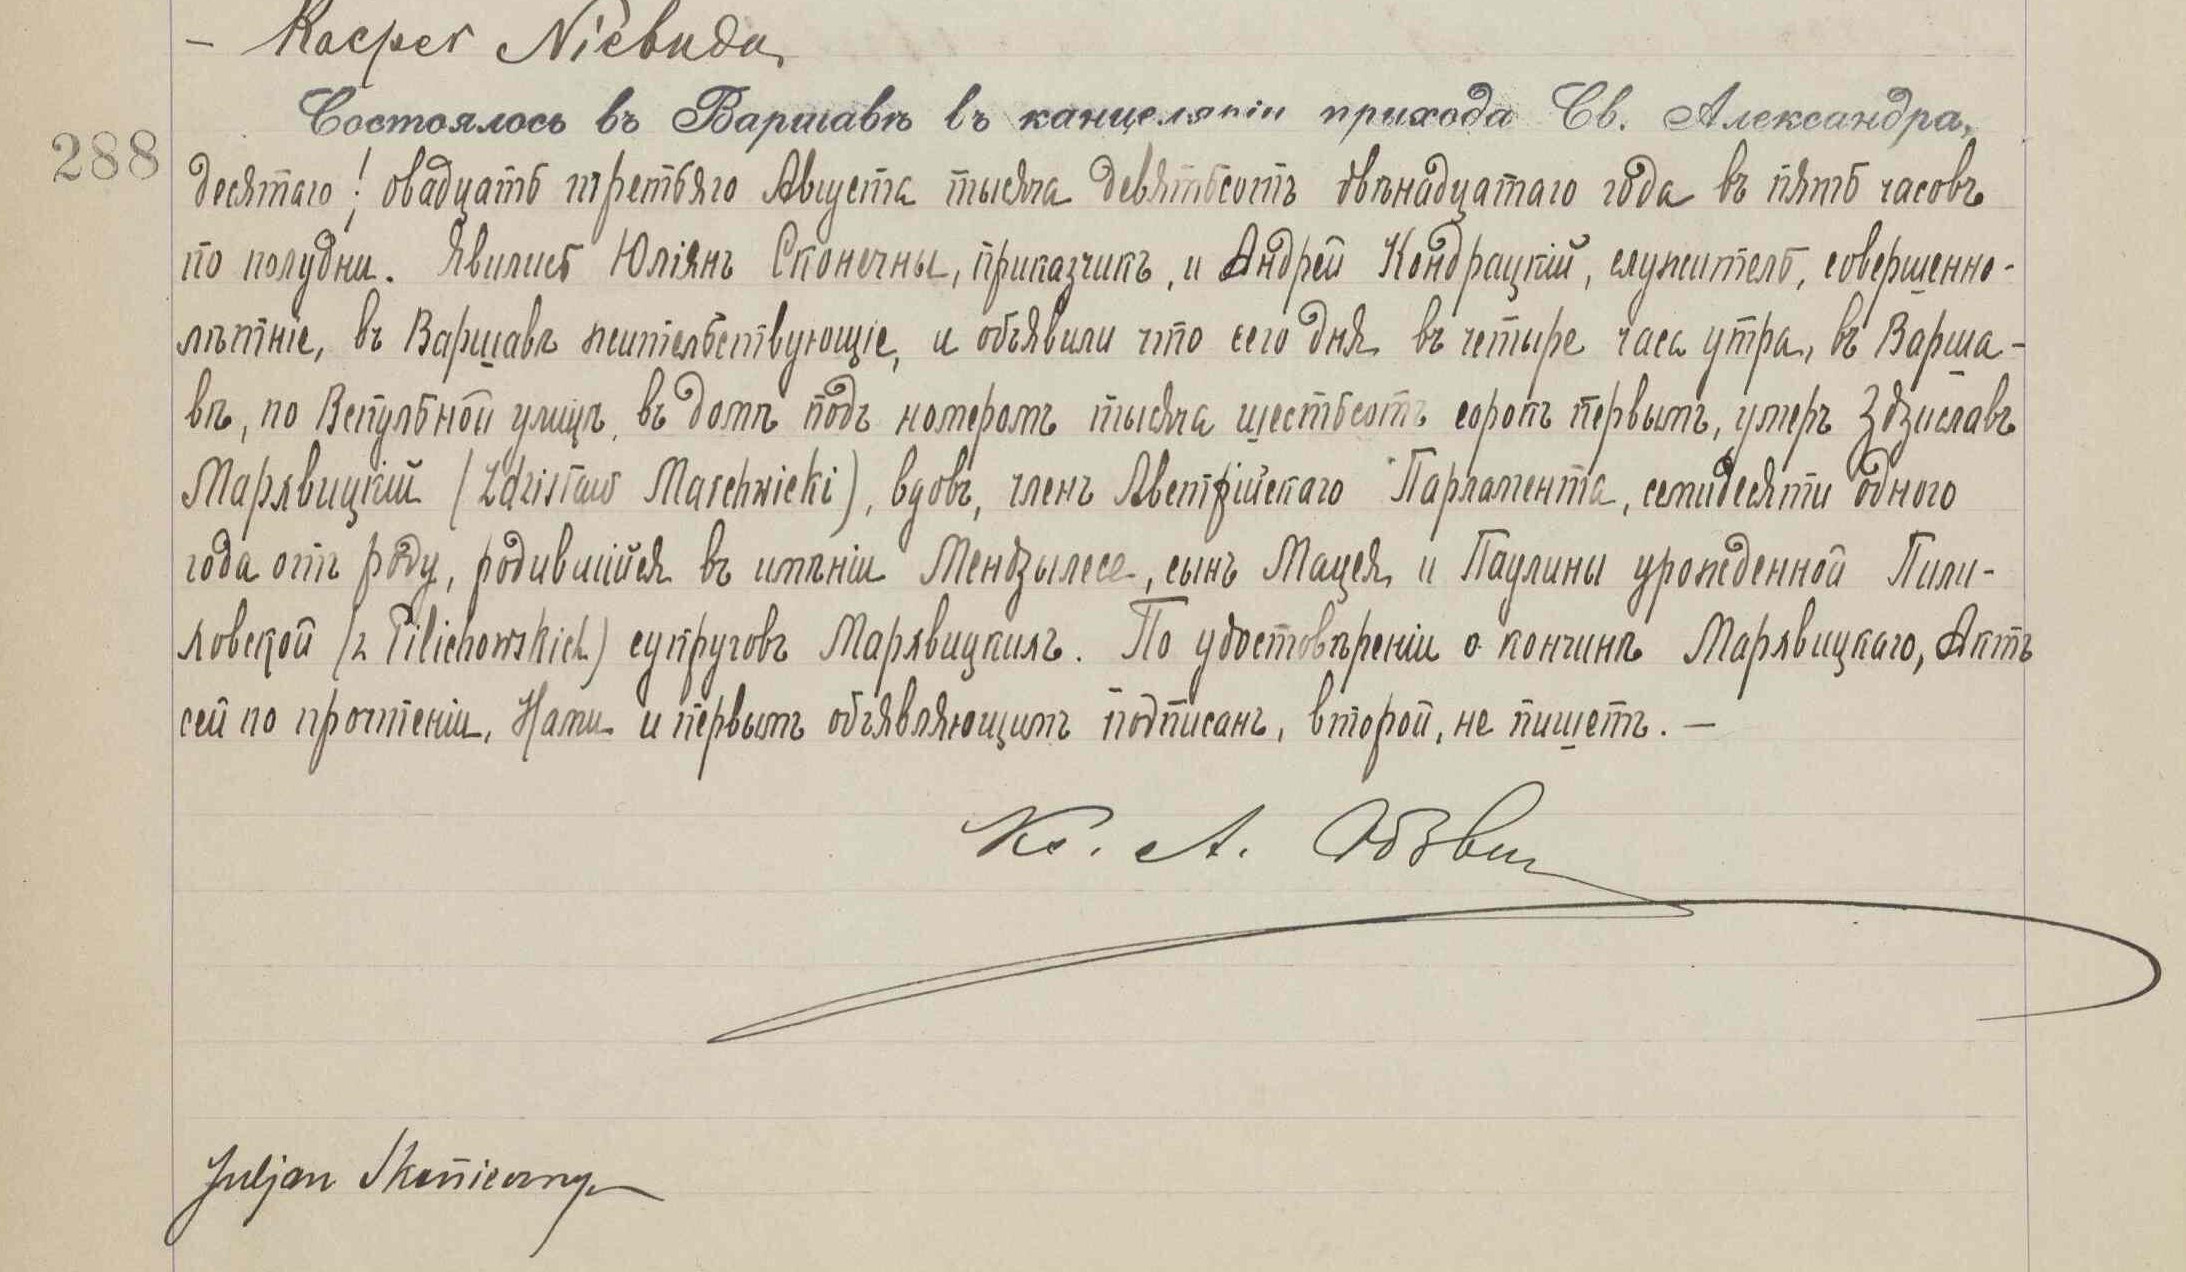 – Kacper Niewada
288
Состоялось въ Варшавѣ въ канцеляріи прихода Св. Александра,
десятаго / двадцать третьяго Августа тысяча девятьсотъ двѣнадцатаго года въ пять часовъ
по полудни. Явились Юліянъ Сконечны, приказчикъ, и Андрей Кондрацкій, служитель, совершенно-
лѣтніе, въ Варшавѣ жительствующіе, и объявили что сего дня въ четыре часа утра, въ Варша-
вѣ, по Вспульной улицѣ, въ домѣ подъ номеромъ тысяча шестьсотъ сорокъ первымъ, умеръ Здзиславъ
Мархвицкій (Zdzisław Marchwicki), вдовъ, членъ Австрійскаго Парламента, семидесяти одного
года отъ роду, родившійся въ имѣніи Мендзылесе, сынъ Мацея и Паулины урожденной Пили-
ховской (z Pilichowskich) супруговъ Мархвицкихъ. По удостовѣреніи о кончинѣ Мархвицкаго, Актъ
сей по прочтеніи, Нами и первымъ объявляющимъ подписанъ, второй, не пишетъ. –
Кс. А.
Juljan Skonieczny